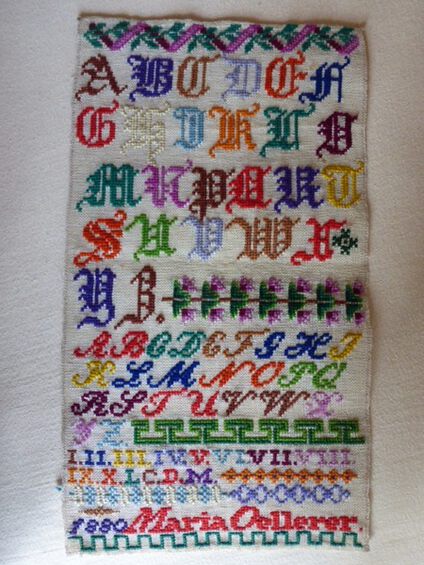 A B C D E F
G H I K L O
M N P Q R T
S U V W X
Y Z.
A B C D E F G H I
K L M N O P Q
R S T U V W X
Y Z.
I.II.III.IV.V.VI.VII.VIII.
IX.X.L.C.D.M.
1890 Maria Oellerer.